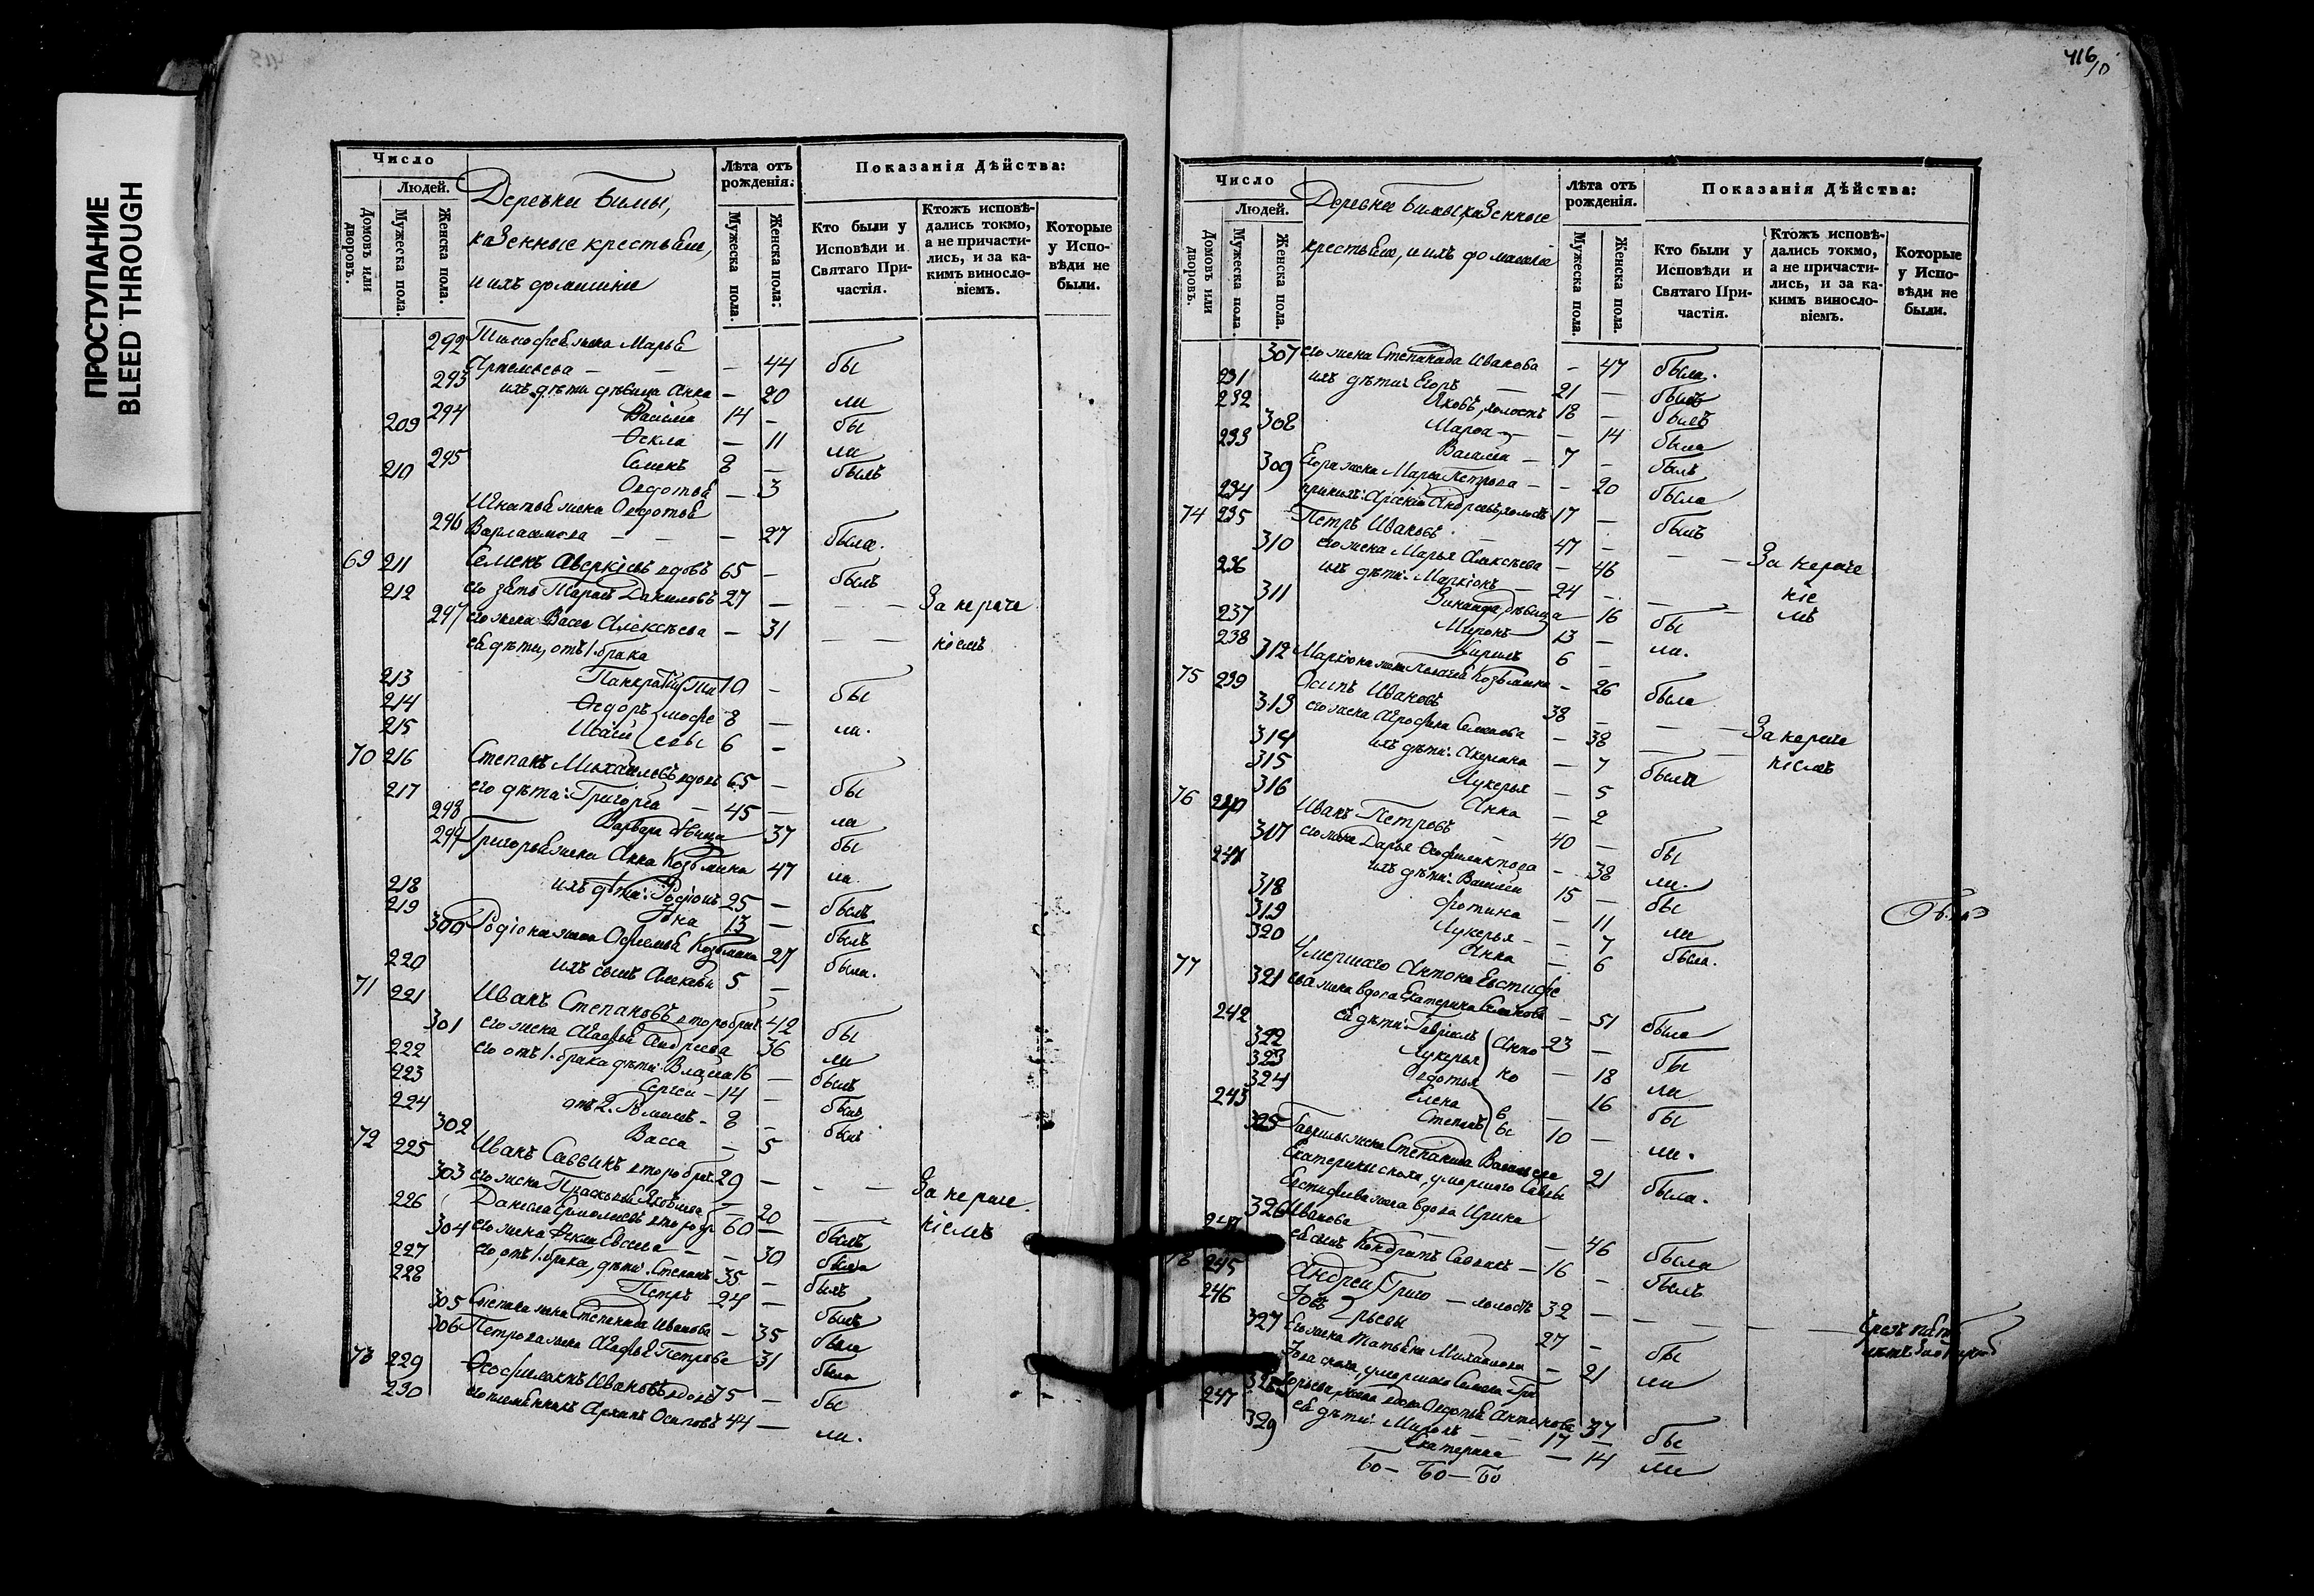 ПРОСТУПАНИЕ
BLEED THROUGH
Число
Людей.
Домовъ или дворовъ.
Мужеска пола.
Женска пола.
Деревни Бимы,
казенные крестьяне,
и ихъ домашніе
Лѣта отъ рожденія.
Мужеска пола.
Женска пола.
Показанія Дѣйства:
Кто были у Исповѣди и Святаго Причастія.
Ктожъ исповѣдались токмо, а не причастились, и за какимъ винословіемъ.
Которые у Исповѣди не были.
292 Тимофея жена Марья
Артемьева — — — 44 бы
293 ихъ дѣти дѣвица Анна — 20 ли
209 294 Василій 14 — бы
Ѳекла — 11 ли
210 295 Семенъ 8 — былъ
Овдотья — 3
Игнатья жена Овдотья
296 Варлаамова — — — 27 была.
69 211 Семенъ Аверкіевъ вдовъ 65 — былъ
212 его зять Тарасъ Даниловъ 27 — — — За нераче
247 его жена Васса Алексѣева — 31 — — ніемъ
ея дѣти, отъ 1. брака
213 Панкратій Ти 10 — бы
214 Ѳедоръ мофе 8 —
215 Исаій евы 6 — ли.
70 216 Степанъ Михайловъ вдовъ 65 — бы
217 его дѣти: Григорій — 45 — ли
298 Варвара дѣвица 37 бы
299 Григорья жена Анна Козьмина 47 ли
218 ихъ дѣти: Родіонъ 25 — былъ
219 Іона 13 — былъ
300 Родіона жена Офимья Козьмина 27 была.
220 ихъ сынъ Алексѣй 5 —
71 221 Иванъ Степановъ второбрач 42 бы
301 его жена Агафья Андреева 36 ли
222 его отъ 1. брака дѣти: Власій 16 — былъ
223 Сергѣй — 14 — былъ
224 отъ 2. — 8 — былъ
302 Васса — 5
72 225 Иванъ Саввинъ второбрач. 29 — — — За нераче
303 его жена Прасковья Яковлева — 20 — ніемъ
226 Данила Ермолаевъ второбр 60 — былъ
304 его жена Фекла Евсеева — — 30 была
227 его, отъ 1. брака, дѣти: Степанъ 35 — былъ
228 Петръ 24 — былъ
305 Степана жена Степанида Иванова — 35 была
306 Петрова жена Агафья Петрова 31 была
73 229 Ѳеофилактъ Ивановъ вдовъ 75 — бы
230 его племянникъ Архипъ Осиповъ 44 — ли.
416
10
Число
Людей.
Домовъ или дворовъ.
Мужеска пола.
Женска пола.
Деревни Бимы, казенные
крестьяне, и ихъ домашніе
Лѣта отъ рожденія.
Мужеска пола.
Женска пола.
Показанія Дѣйства:
Кто были у Исповѣди и Святаго Причастія.
Ктожъ исповѣдались токмо, а не причастились, и за какимъ винословіемъ.
Которые у Исповѣди не были.
307 его жена Степанида Иванова — 47 была.
231 ихъ дѣти: Егоръ — 21 — былъ
232 Яковъ, холостъ 18 — былъ
308 Марѳа — — 14 была
233 Василій — 7 — былъ
309 Егора жена Марья Петрова — — 20 была
234 приних: Арсеній Андреевъ, холостъ 17 — былъ
74 235 Петръ Ивановъ — 47 — — — За нераче
310 его жена Марья Алексѣева — 46 ніе
236 ихъ дѣти: Маркіонъ — 24 — — — мъ
311 Зинаида, дѣвица — 16 бы
237 Миронъ 13 —
238 Кирилъ 6 — ли.
312 Маркіона жена Пелагея Козьмина — 26 была
75 239 Осипъ Ивановъ 38 — — — За нераче
313 его жена Агрофена Семенова — 38 — — ніемъ
314 ихъ дѣти: Акулина — 7 были
315 Лукерья — 5
316 Анна — 2
76 240 Иванъ Петровъ — 40 — бы
317 его жена Дарья Ѳеофилактова — 38 ли.
241 ихъ дѣти: Василій 15 — бы
318 Фотина — 11 ли
319 Лукерья — — 7 была.
320 Анна — 6
77 Умершаго Антона Евстифе
321 ева жена вдова Екатерина Семенова — 51 была
242 ея дѣти: Гавріилъ Анто 23 — бы
322 Лукерья но — 18 ли
323 Овдотья 16 бы
324 Елена в —
243 Степанъ вы 10 — ли.
325 Гаврилы жена Степанида Васильева 21 была.
Екатерины сноха, умершаго Саввы
Евстифеева жена вдова Ирина
326 Иванова — — 46 была
244 ея сынъ Кондратъ Саввинъ — 16 — былъ
78 245 Андрей Григо — холостъ 32 — — — — —
246 Іовъ рьевы 27 — бы
327 Его жена Татьяна Михайлова — 21 ли
Іова сноха, умершаго Семена Гри
328 горьева жена вдова Овдотья Антонова 37 бы
247 ея дѣти: Миронъ — — 17 —
329 Екатерина — 14 ли
Бо — Бо — Бо